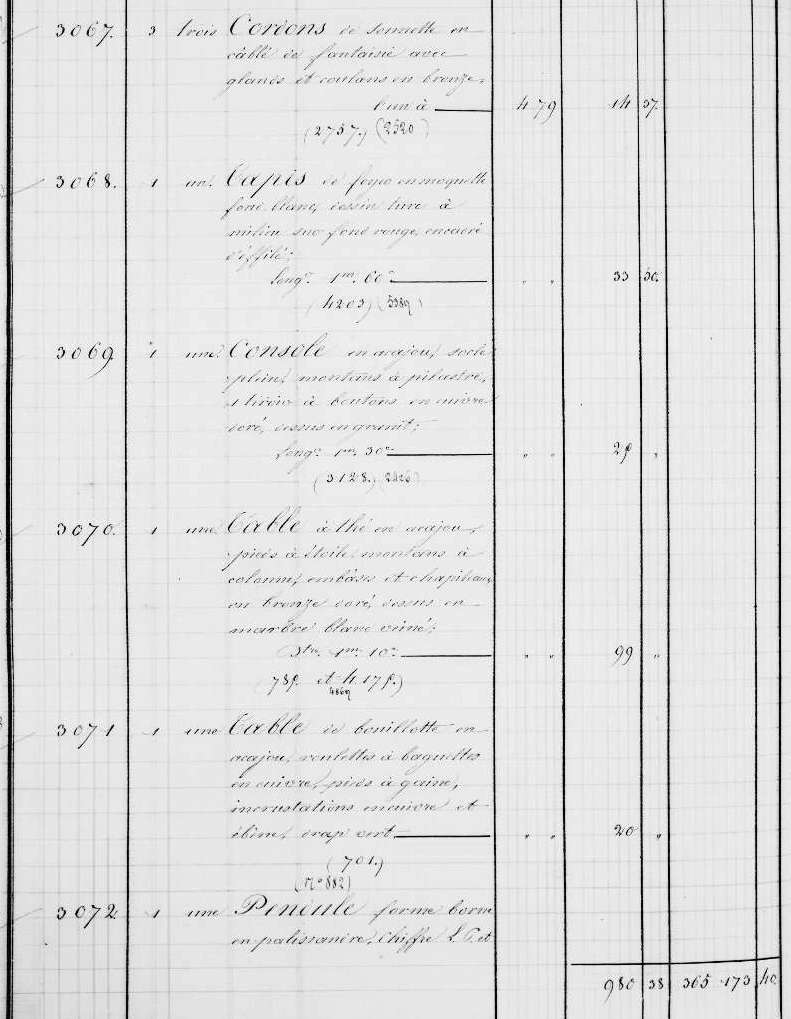 3067. 3 trois Cordons de sonnette en
câblé de fantaisie avec
glands et coulans en bronze,
l'un à 4 79 14 37.
(2757.) (2520)
3068. 1 un Tapis de foyer en moquette
fond blanc, dessin turc à
milieu sur fond rouge, encadré
d'effilé;
long.r 1m. 60c 33 30.
(4203) (5389)
3069 1 une Console en acajou, socle
plein, montans à pilastre,
1 tiroir à boutons en cuivre
doré, dessus en granit;
long.r 1m. 30c 29 "
(3128.)
3070. 1 une Table à thé en acajou,
pieds à étoile, montans à
colonne, embâses et chapiteaux
en bronze doré, dessus en
marbre blanc veiné;
Dtre. 1m. 10c 99 "
(789. et 4179.)
4869
3071 1 une Table de bouillotte en
acajou, roulettes à baguettes
en cuivre, pieds à gaine,
incrustations en cuivre et
ébène, drap vert. 20 "
(701.)
(No 882)
3072 1 une Pendule forme borne
en palissandre, chiffre L. P. et
980 38 365 173 40